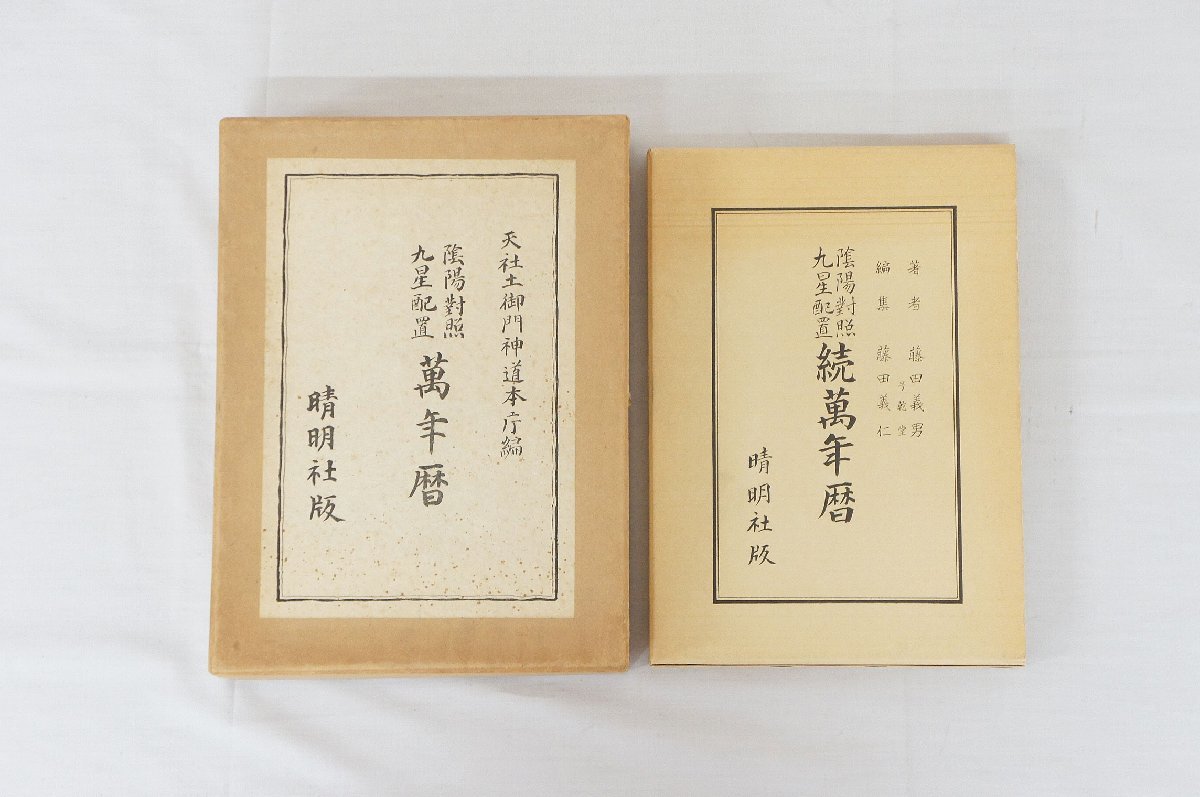 天社土御門神道本庁編
陰陽對照
九星配置
萬年暦
晴明社版
著者 藤田義男
乾堂
編集 藤田義仁
陰陽對照
九星配置
続萬年暦
晴明社版